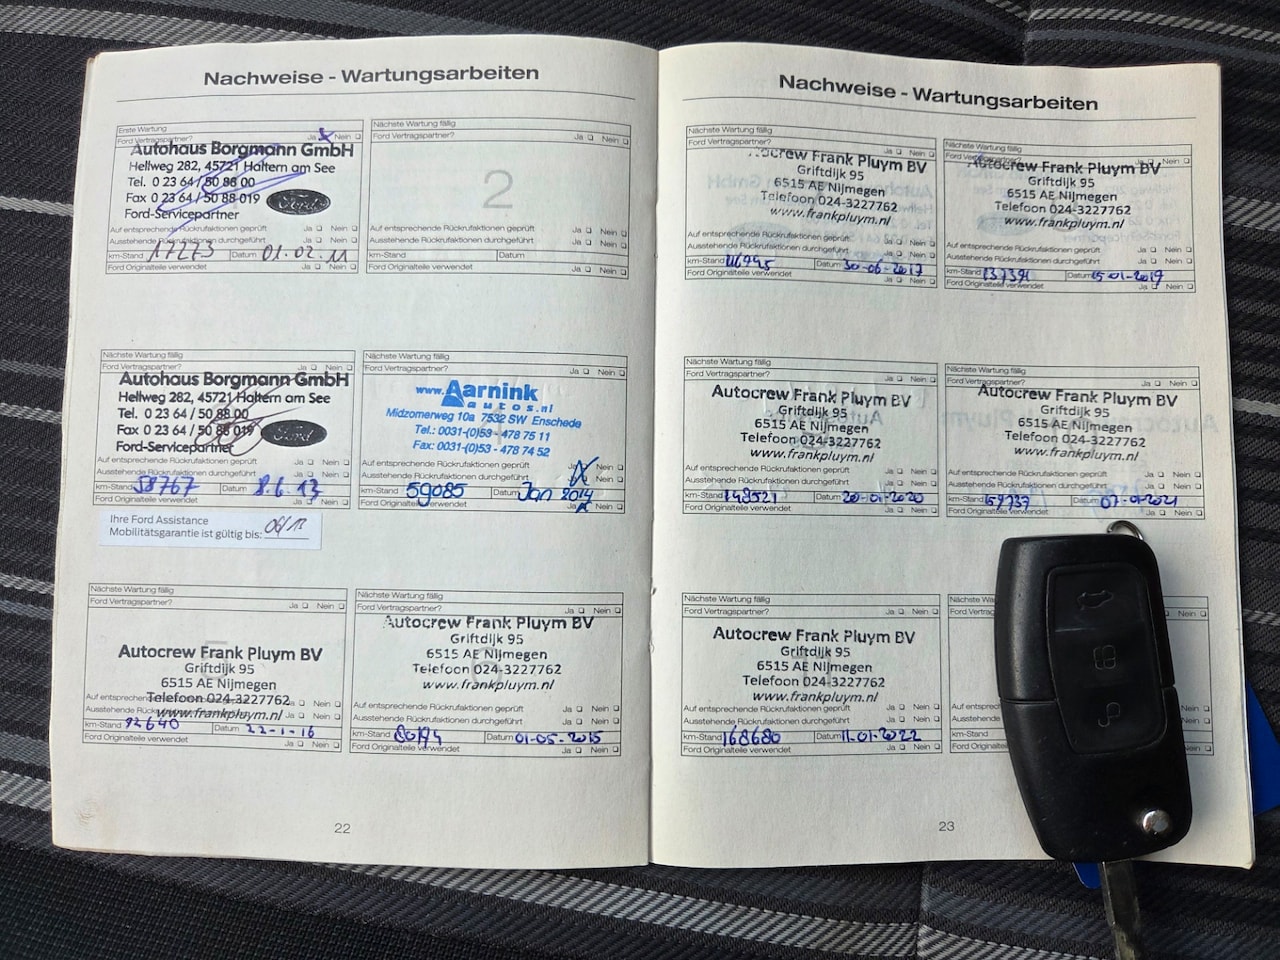 Nachweise - Wartungsarbeiten
Erste Wartung
Ford Vertragspartner? Ja Nein
Autohaus Borgmann GmbH
Hellweg 282, 45721 Haltern am See
Tel. 0 23 64 / 50 88 00
Fax 0 23 64 / 50 88 019
Ford
Ford-Servicepartner
Auf entsprechende Rückrufaktionen geprüft Ja Nein
Ausstehende Rückrufaktionen durchgeführt Ja Nein
km-Stand 17273 Datum 01.02.11
Ford Originalteile verwendet Ja Nein
Nächste Wartung fällig
Ford Vertragspartner? Ja Nein
2
Auf entsprechende Rückrufaktionen geprüft Ja Nein
Ausstehende Rückrufaktionen durchgeführt Ja Nein
km-Stand Datum
Ford Originalteile verwendet Ja Nein
Nächste Wartung fällig
Ford Vertragspartner? Ja Nein
Autohaus Borgmann GmbH
Hellweg 282, 45721 Haltern am See
Tel. 0 23 64 / 50 88 00
Fax 0 23 64 / 50 88 019
Ford
Ford-Servicepartner
Auf entsprechende Rückrufaktionen geprüft Ja Nein
Ausstehende Rückrufaktionen durchgeführt Ja Nein
km-Stand 58767 Datum 8.6.13
Ford Originalteile verwendet Ja Nein
Ihre Ford Assistance
Mobilitätsgarantie ist gültig bis:
Nächste Wartung fällig
Ford Vertragspartner? Ja Nein
www.Aarnink
autos.nl
Midzomerweg 10a 7532 SW Enschede
Tel.: 0031-(0)53 - 478 75 11
Fax: 0031-(0)53 - 478 74 52
Auf entsprechende Rückrufaktionen geprüft Ja Nein
Ausstehende Rückrufaktionen durchgeführt Ja Nein
km-Stand 59085 Datum Jan 2014
Ford Originalteile verwendet Ja Nein
Nächste Wartung fällig
Ford Vertragspartner? Ja Nein
Autocrew Frank Pluym BV
Griftdijk 95
6515 AE Nijmegen
Telefoon 024-3227762
www.frankpluym.nl
Auf entsprechende Rückrufaktionen geprüft Ja Nein
Ausstehende Rückrufaktionen durchgeführt Ja Nein
km-Stand 92640 Datum 22-1-16
Ford Originalteile verwendet Ja Nein
Nächste Wartung fällig
Ford Vertragspartner? Ja Nein
Autocrew Frank Pluym BV
Griftdijk 95
6515 AE Nijmegen
Telefoon 024-3227762
www.frankpluym.nl
Auf entsprechende Rückrufaktionen geprüft Ja Nein
Ausstehende Rückrufaktionen durchgeführt Ja Nein
km-Stand 80194 Datum 01-05-2015
Ford Originalteile verwendet Ja Nein
22
Nachweise - Wartungsarbeiten
Nächste Wartung fällig
Ford Vertragspartner? Ja Nein
Autocrew Frank Pluym BV
Griftdijk 95
6515 AE Nijmegen
Telefoon 024-3227762
www.frankpluym.nl
Auf entsprechende Rückrufaktionen geprüft Ja Nein
Ausstehende Rückrufaktionen durchgeführt Ja Nein
km-Stand 116745 Datum 30-06-2017
Ford Originalteile verwendet Ja Nein
Nächste Wartung fällig
Ford Vertragspartner? Ja Nein
Autocrew Frank Pluym BV
Griftdijk 95
6515 AE Nijmegen
Telefoon 024-3227762
www.frankpluym.nl
Auf entsprechende Rückrufaktionen geprüft Ja Nein
Ausstehende Rückrufaktionen durchgeführt Ja Nein
km-Stand 137391 Datum 15-01-2019
Ford Originalteile verwendet Ja Nein
Nächste Wartung fällig
Ford Vertragspartner? Ja Nein
Autocrew Frank Pluym BV
Griftdijk 95
6515 AE Nijmegen
Telefoon 024-3227762
www.frankpluym.nl
Auf entsprechende Rückrufaktionen geprüft Ja Nein
Ausstehende Rückrufaktionen durchgeführt Ja Nein
km-Stand 148521 Datum 20-01-2020
Ford Originalteile verwendet Ja Nein
Nächste Wartung fällig
Ford Vertragspartner? Ja Nein
Autocrew Frank Pluym BV
Griftdijk 95
6515 AE Nijmegen
Telefoon 024-3227762
www.frankpluym.nl
Auf entsprechende Rückrufaktionen geprüft Ja Nein
Ausstehende Rückrufaktionen durchgeführt Ja Nein
km-Stand 159737 Datum 07-01-2021
Ford Originalteile verwendet Ja Nein
Nächste Wartung fällig
Ford Vertragspartner? Ja Nein
Autocrew Frank Pluym BV
Griftdijk 95
6515 AE Nijmegen
Telefoon 024-3227762
www.frankpluym.nl
Auf entsprechende Rückrufaktionen geprüft Ja Nein
Ausstehende Rückrufaktionen durchgeführt Ja Nein
km-Stand 168680 Datum 11-01-2022
Ford Originalteile verwendet Ja Nein
Ford Vertrag
Auf entsprech
Ausstehende
km-Stand
Ford Original
Nein
23